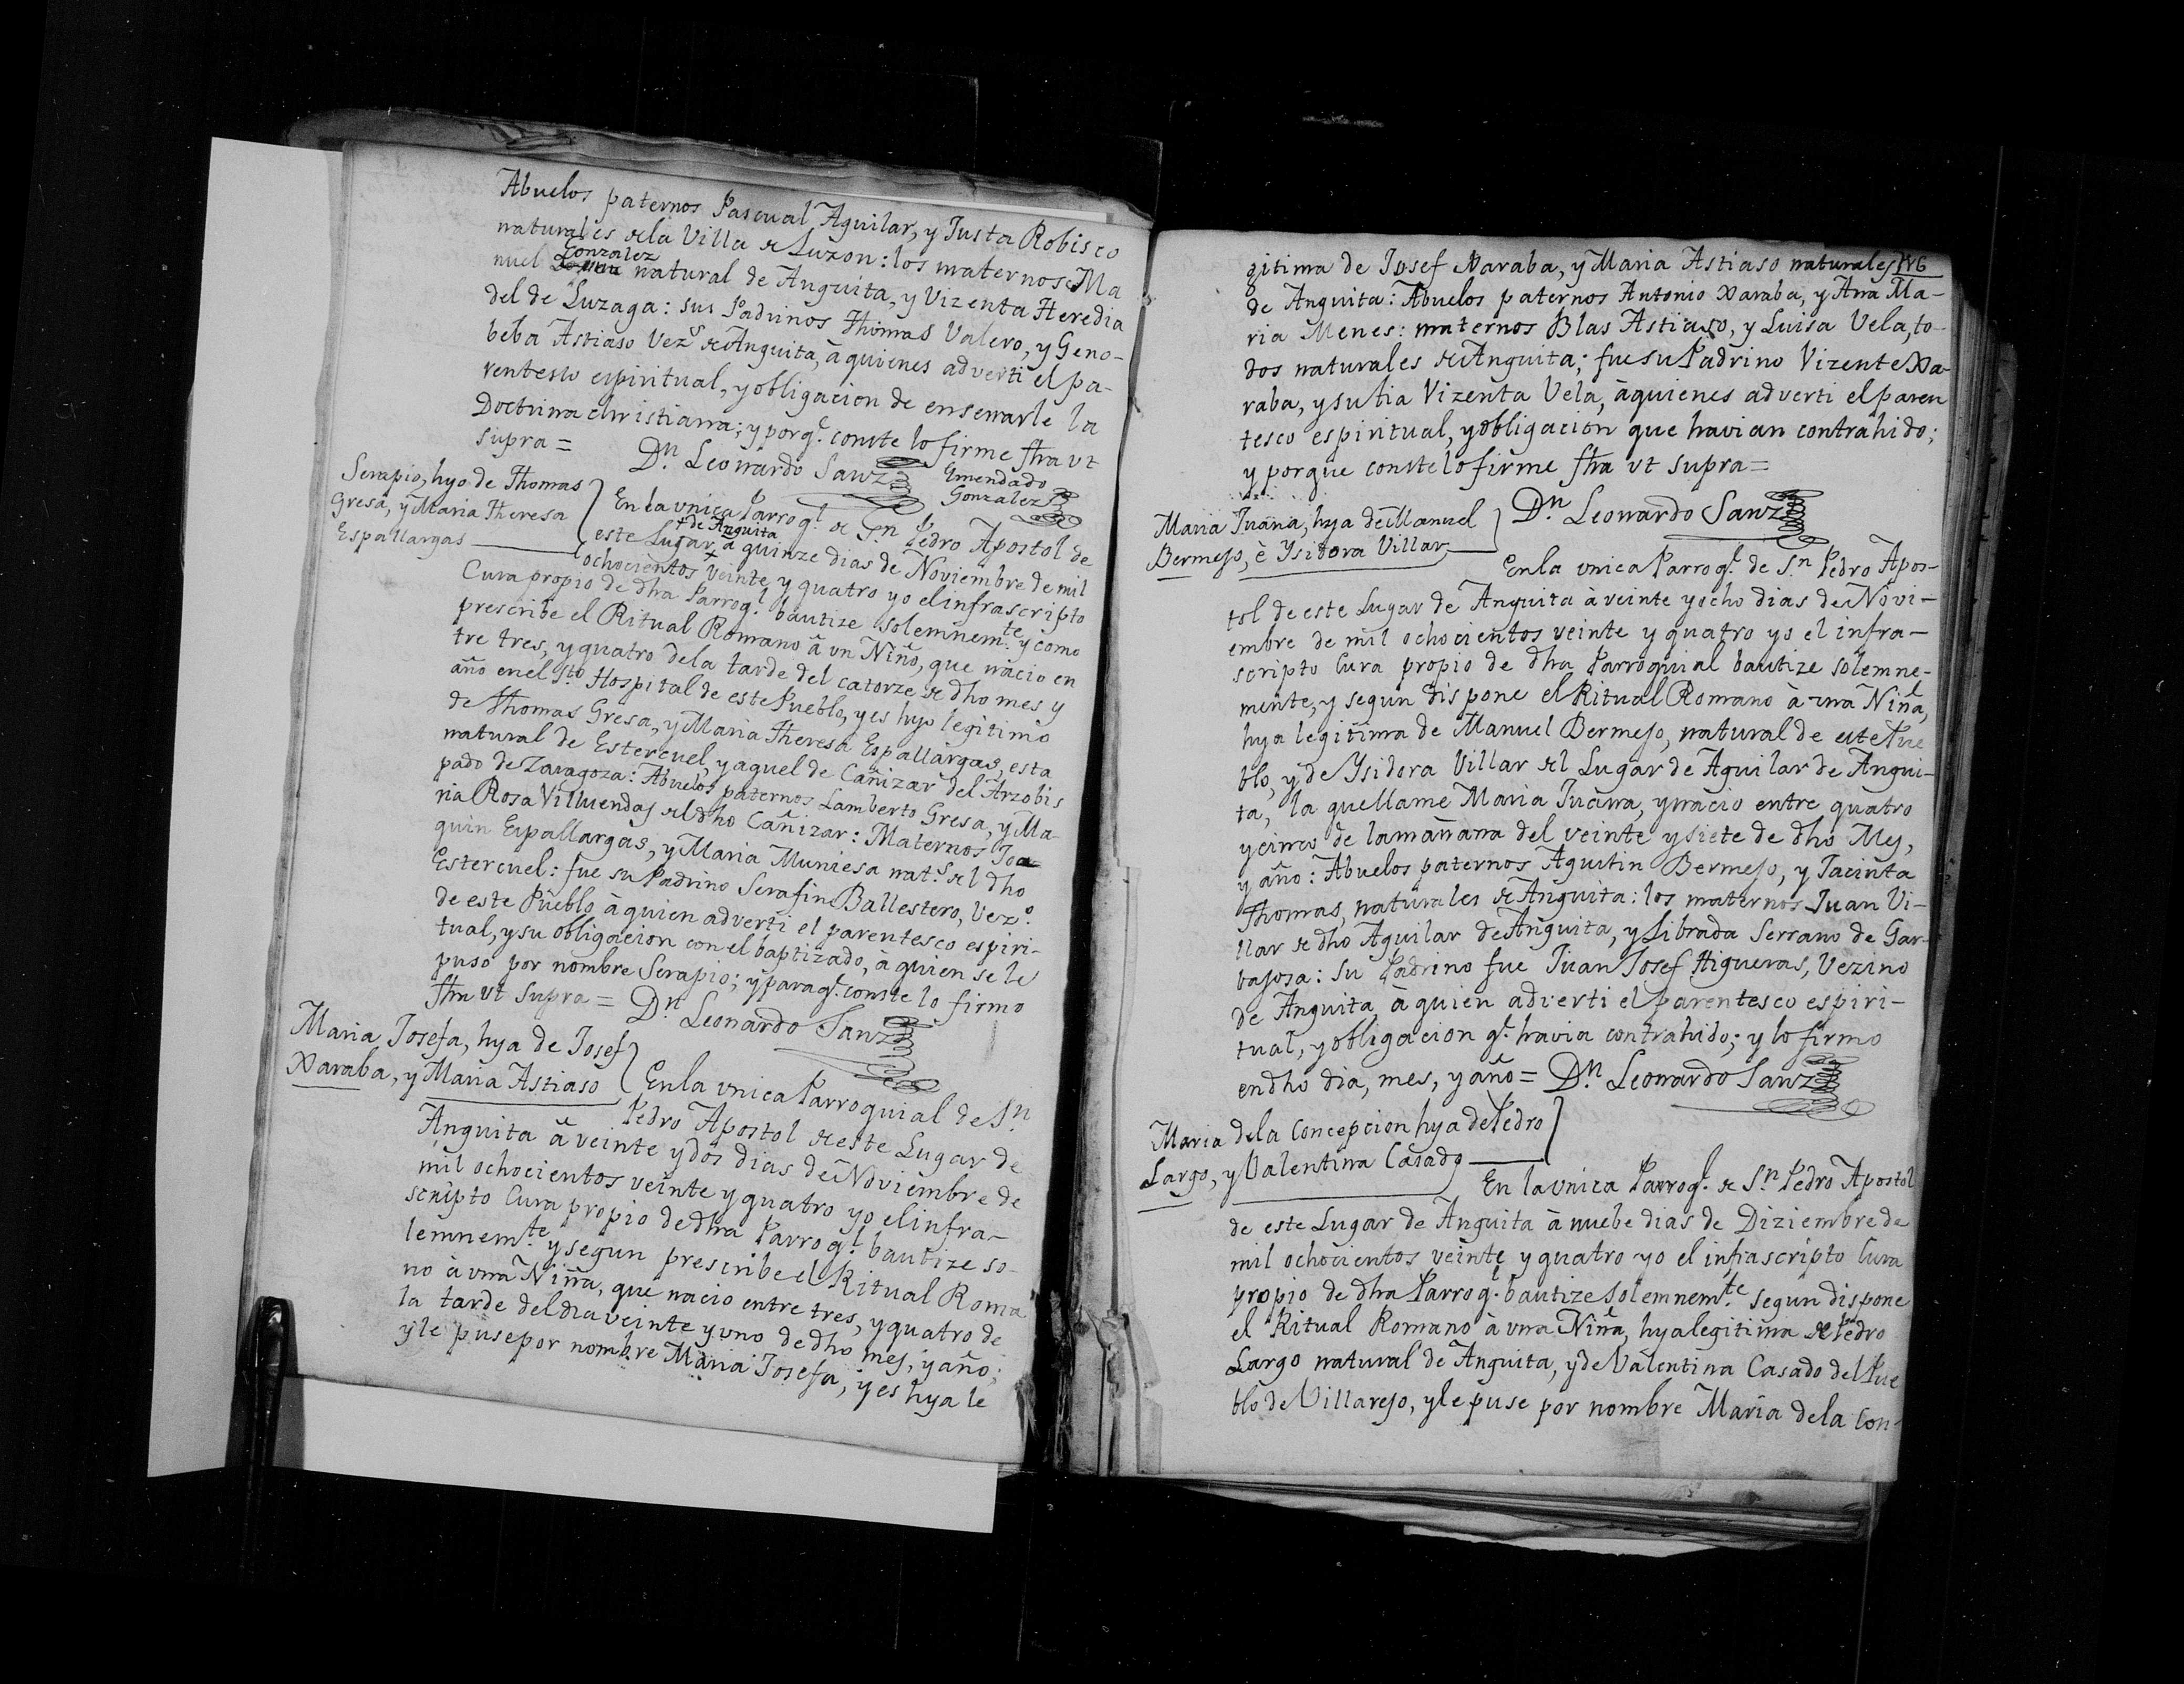 Abuelos paternos Pascual Aguilar, y Justa Robisco
naturales de la Villa de Luzon: los maternos Ma
nuel Gonzalez natural de Anguita, y Vizenta Heredia
del de Luzaga: sus Padrinos Thomas Valero, y Geno-
beba Astiaso Vez.s de Anguita, à quienes adverti el pa-
rentesco espiritual, y obligacion de enseñarle la
Doctrina christiana; y porq.e conste lo firme fha vt
supra = D.n Leonardo Sanz
Emendado
Gonzalez
Serapio, hyo de Thomas
Gresa, y Maria Theresa
Espallargas
En la vnica Parroq.l de S.n Pedro Apostol de
este Lugar + de Anguita à quinze dias de Noviembre de mil
ochocientos veinte y quatro yo el infrascripto
Cura propio de dha Parroq.l bautize solemnem.te y como
prescribe el Ritual Romano â vn Niño, que nacio en
tre tres, y quatro dela tarde del catorze de dho mes y
año en el S.to Hospital de este Pueblo, y es hyo legitimo
de Thomas Gresa, y Maria Theresa Espallargas, esta
natural de Estercuel, y aquel de Cañizar del Arzobis
pado de Zaragoza: Abuelos paternos Lamberto Gresa, y Ma-
ria Rosa Villuendas del dho Cañizar: Maternos Joa
quin Espallargas, y Maria Muniesa nat.s del dho
Estercuel: fue su Padrino Serafin Ballestero, Vez.o
de este Pueblo à quien adverti el parentesco espiri-
tual, y su obligacion con el baptizado, à quien se le
puso por nombre Serapio; y paraq.e conste lo firmo
fha vt supra = D.n Leonardo Sanz
Maria Josefa, hya de Josef
Xaraba, y Maria Astiaso
En la vnica Parroquial de S.n
Pedro Apostol de este Lugar de
Anguita â veinte y dos dias de Noviembre de
mil ochocientos veinte y quatro yo el infra-
scripto Cura propio de dha Parroq.l bautize so-
lemnem.te y segun prescribe el Ritual Roma
no à vna Niña, que nacio entre tres, y quatro de
la tarde del dia veinte y vno de dho mes, y año;
y le puse por nombre Maria Josefa, y es hya le
gitima de Josef Xaraba, y Maria Astiaso naturales 176
de Anguita: Abuelos paternos Antonio Xaraba, y Ana Ma-
ria Menes: maternos Blas Astiaso, y Luisa Vela, to-
dos naturales de Anguita; fue su Padrino Vizente Xa-
raba, y su tia Vizenta Vela, àquienes adverti el paren
tesco espiritual, y obligacion que havian contrahido;
y porque conste lo firme fha vt supra =
D.n Leonardo Sanz
Maria Juana, hya de Manuel
Bermejo, è Ysidora Villar
En la vnica Parroq.l de S.n Pedro Apos-
tol de este Lugar de Anguita à veinte y ocho dias de Novi-
embre de mil ochocientos veinte y quatro yo el infra-
scripto Cura propio de dha Parroquial bautize solemne-
mente, y segun dispone el Ritual Romano à vna Niña,
hya legitima de Manuel Bermejo, natural de este Pue
blo, y de Ysidora Villar del Lugar de Aguilar de Angui-
ta, la que llame Maria Juana, y nacio entre quatro
y cinco de la mañana del veinte y siete de dho Mes,
y año: Abuelos paternos Agustin Bermejo, y Jacinta
Thomas, naturales de Anguita: los maternos Juan Vi-
llar de dho Aguilar de Anguita, y Librada Serrano de Gar-
bajosa: su Padrino fue Juan Josef Higueras, Vezino
de Anguita, à quien adverti el parentesco espiri-
tual, y obligacion q.e havia contrahido; y lo firmo
en dho dia, mes, y año = D.n Leonardo Sanz
Maria dela Concepcion hya de Pedro
Largo, y Valentina Casado
En la vnica Parroq.l de S.n Pedro Apostol
de este Lugar de Anguita à nuebe dias de Diziembre de
mil ochocientos veinte y quatro yo el infrascripto Cura
propio de dha Parroq.l bautize solemnem.te segun dispone
el Ritual Romano à vna Niña, hya legitima de Pedro
Largo natural de Anguita, y de Valentina Casado del Pue
blo de Villarejo, y le puse por nombre Maria dela Con-